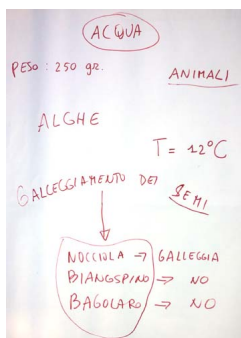 ACQUA
PESO : 250 gr.
ANIMALI
ALGHE
T = 12°C
GALLEGGIAMENTO DEI
SEMI
NOCCIOLA → GALLEGGIA
BIANGSPINO → NO
BAGOLARO → NO